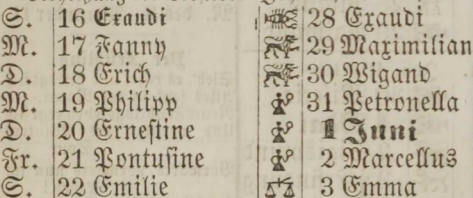 S. 16 Exaudi 28 Exaudi
M. 17 Fanny 29 Maximilian
D. 18 Erich 30 Wigand
M. 19 Philipp 31 Petronella
D. 20 Erneſtine 1 Juni
Fr. 21 Pontuſine 2 Marcellus
S. 22 Emilie 3 Emma